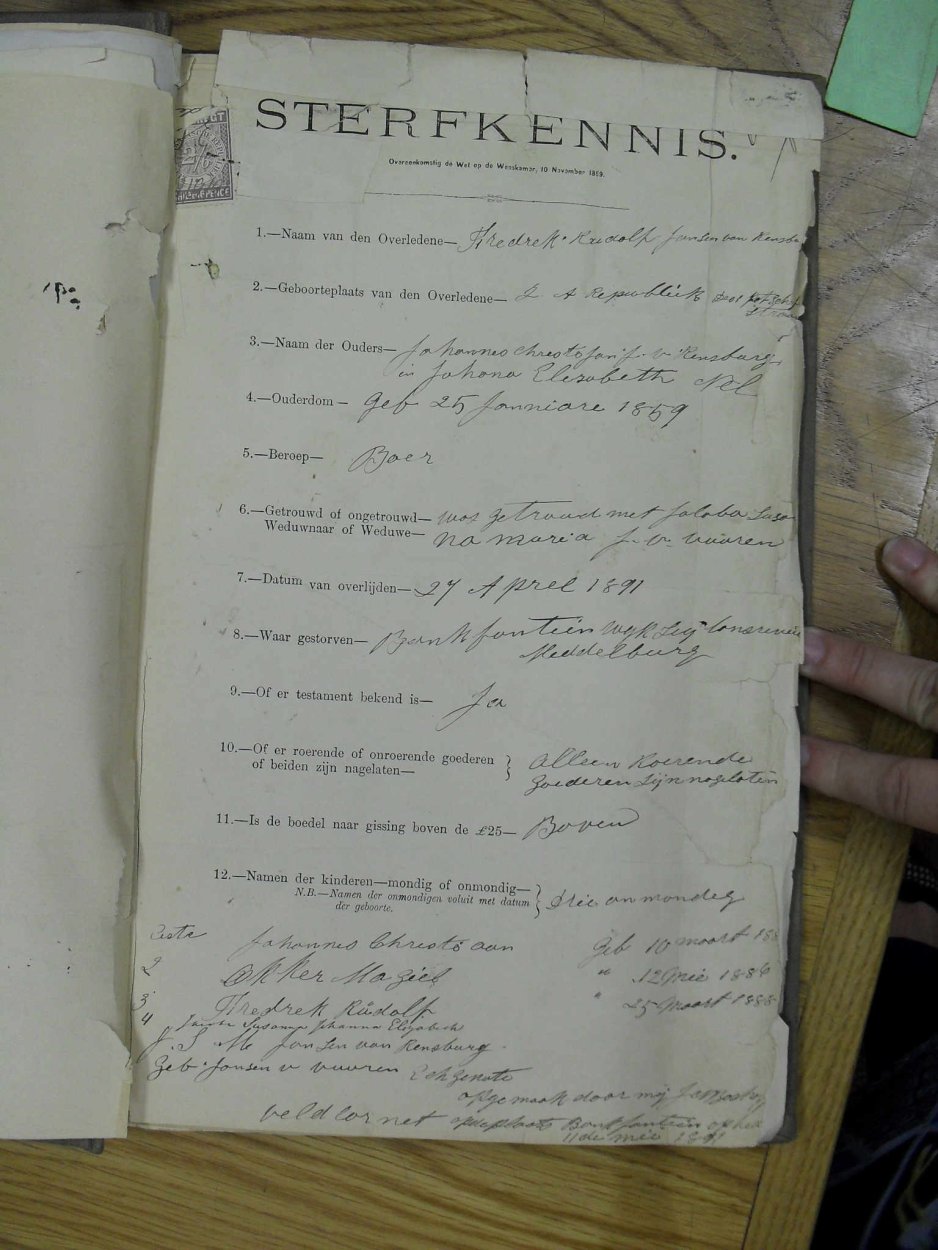 STERFKENNIS.
Overeenkomstig de Wet op de Weeskamer, 10 November 1859.
1.—Naam van den Overledene— Fredrek Rudolf Jansen van Rensbu
2.—Geboorteplaats van den Overledene— Z A Republiek
3.—Naam der Ouders— Johannes Christofan J. v. Rensburg
in Johana Elezabeth Nel
4.—Ouderdom— Geb 25 Janniare 1859
5.—Beroep— Boer
6.—Getrouwd of ongetrouwd— was getroud met Jakoba Susa
Weduwnaar of Weduwe— na maria J. v. vuuren
7.—Datum van overlijden— 27 Aprel 1891
8.—Waar gestorven— Bankfontein Wyk
Meddelburg
9.—Of er testament bekend is— Ja
10.—Of er roerende of onroerende goederen alleen Roerende
of beiden zijn nagelaten— goederen Zijn nagelaten
11.—Is de boedel naar gissing boven de £25— Boven
12.—Namen der kinderen—mondig of onmondig— Drie onmondeg
N.B.—Namen der onmondigen voluit met datum
der geboorte.
Johannes Christo aan Geb 10 maart 188
2 Akker Maziel " 12 Mie 1886
3 Fredrek Rudolf " 25 Maart 1888
4 Susanna Johanna Elizabeth
J. S. M. Jansen van Rensburg
Geb. Jansen v vuuren Echgenote
opgemaak door mij
veldcornet opdeplaats Bankfontein op hed
11de mei 1891